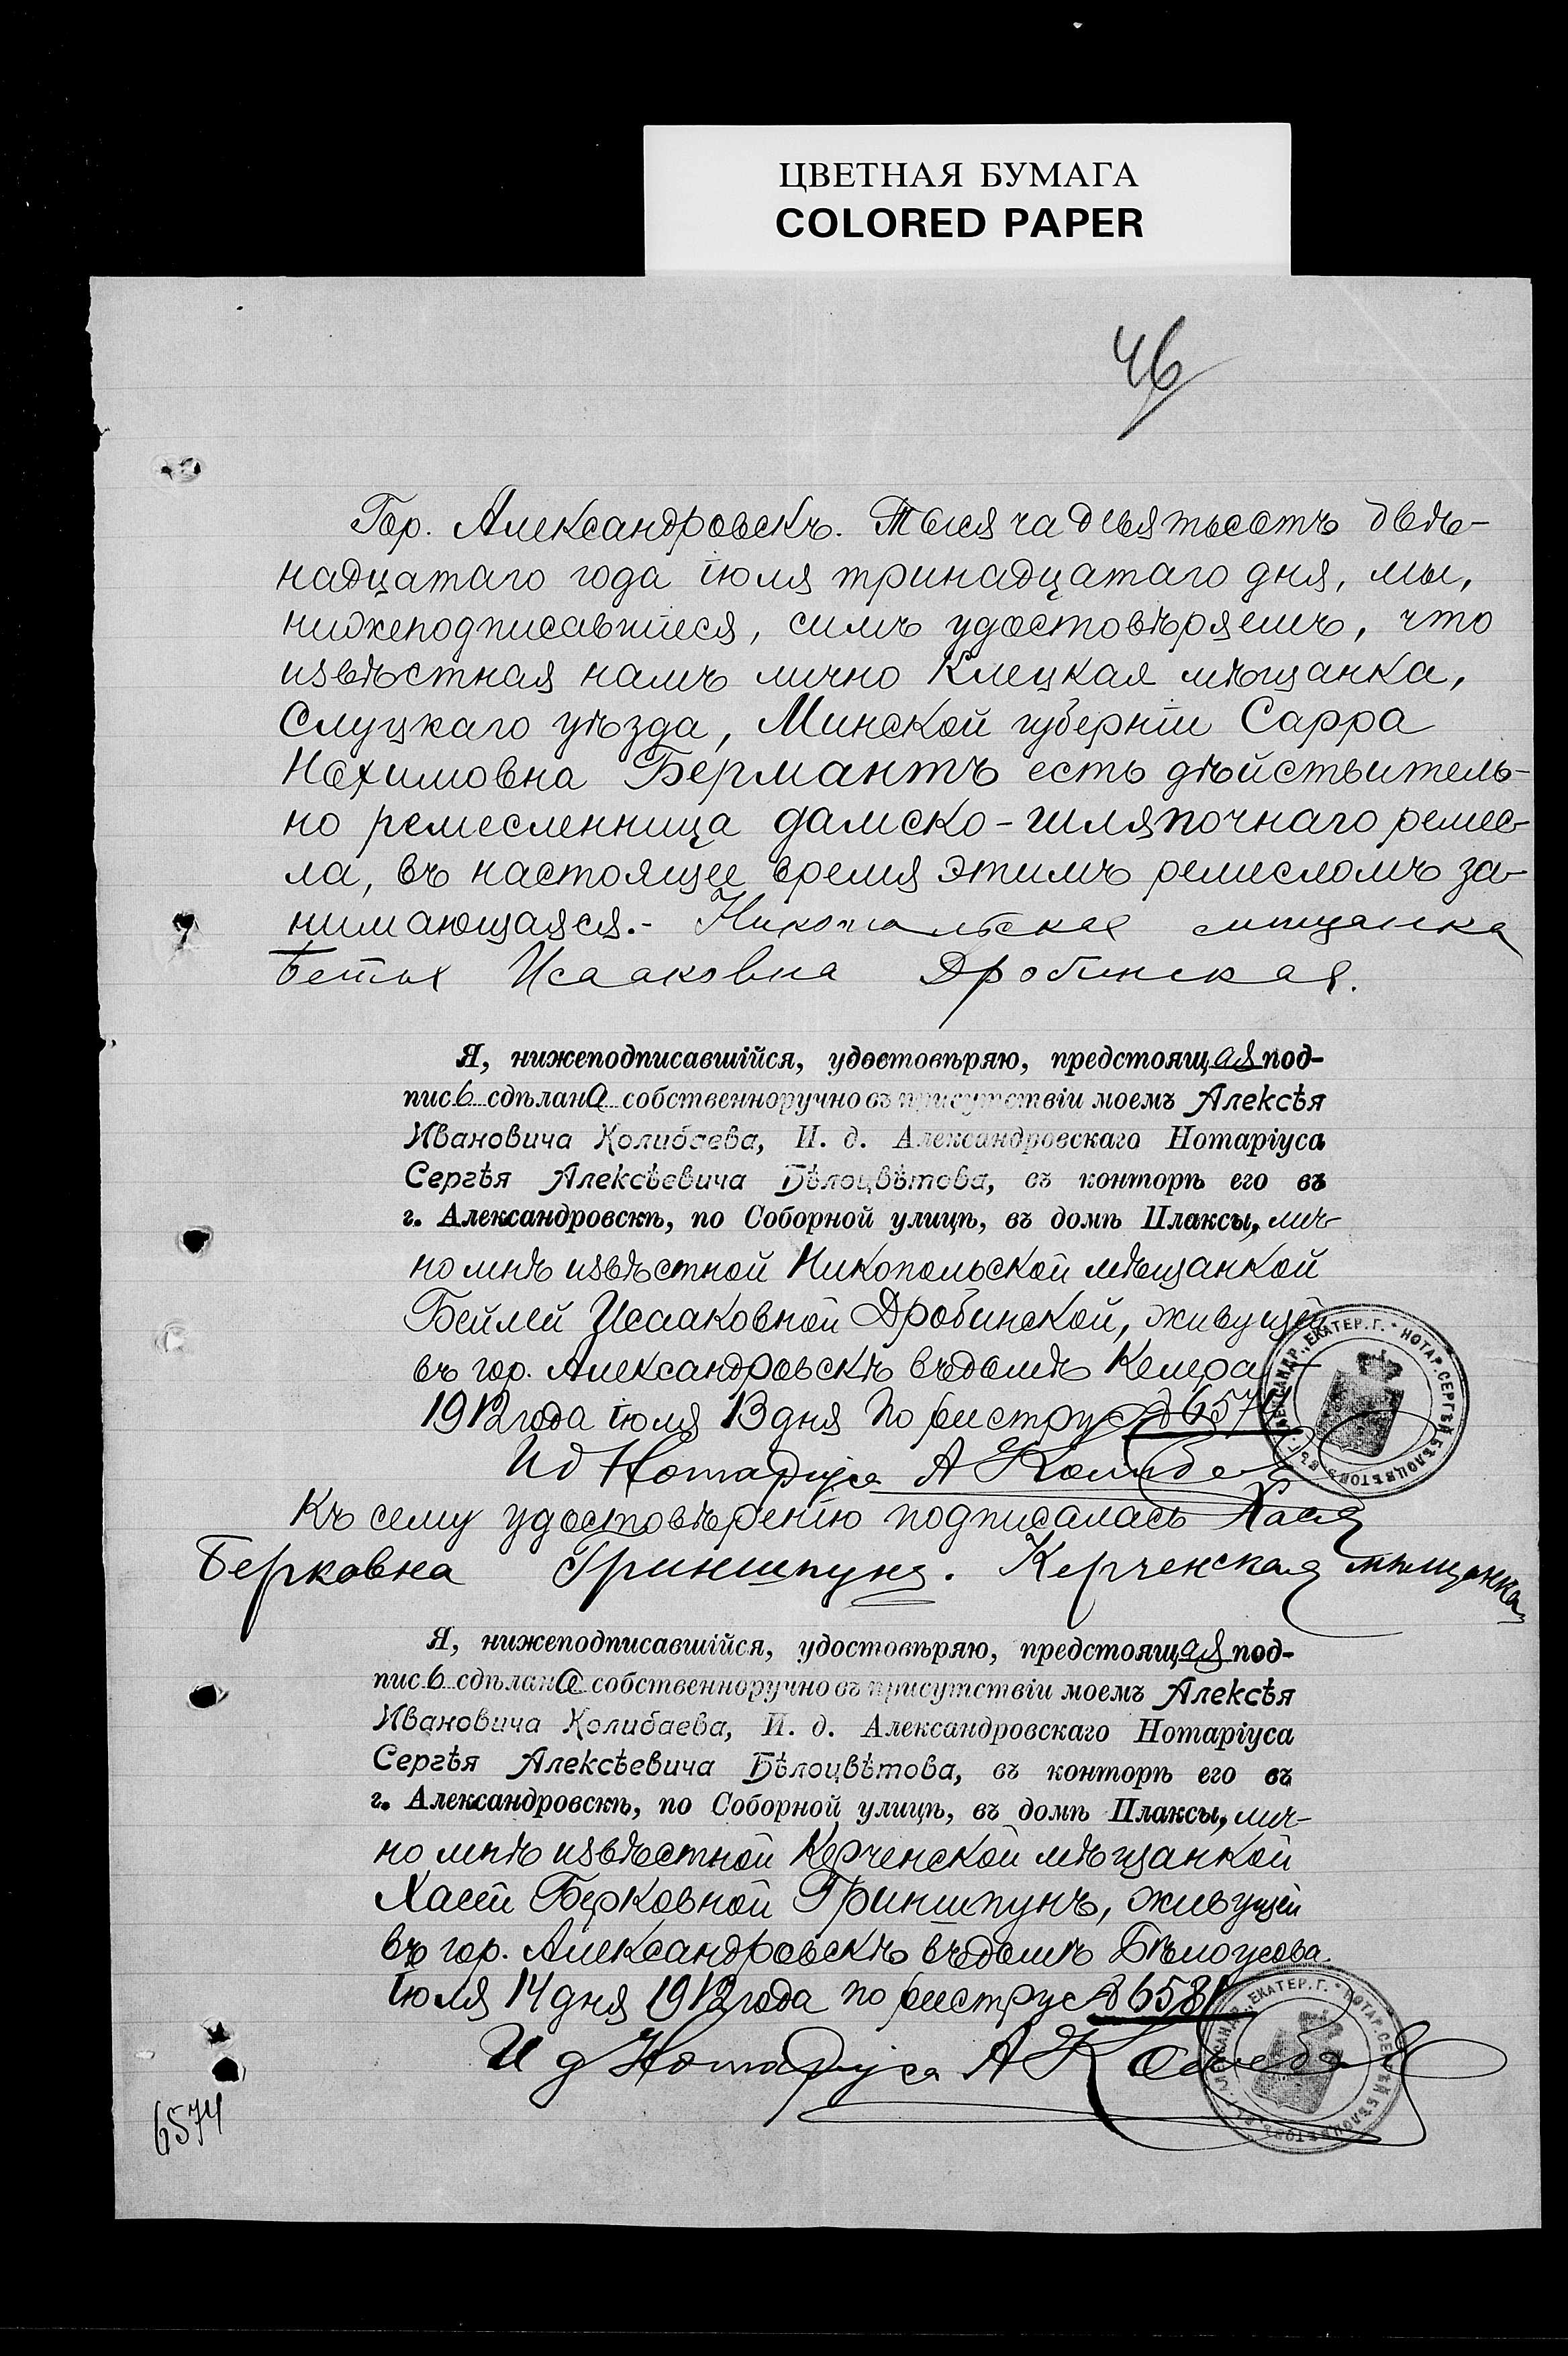 ЦВЕТНАЯ БУМАГА
COLORED PAPER
46
Гор. Александровскъ. Тысяча девятьсотъ двѣ-
надцатаго года іюля тринадцатаго дня, мы,
нижеподписавшіеся, симъ удостовѣряемъ, что
извѣстная намъ лично Клецкая мѣщанка,
Слуцкаго уѣзда, Минской губерніи Сарра
Нохимовна Бермантъ есть дѣйствитель-
но ремесленница дамско-шляпочнаго ремес-
ла, въ настоящее время этимъ ремесломъ за-
нимающаяся.- Никопольская мѣщанка
Исааковна Дробинская.
Я, нижеподписавшійся, удостовѣряю, предстоящая под-
пись сдѣлана собственноручно въ присутствіи моемъ Алексѣя
Ивановича Колибаева, И. д. Александровскаго Нотаріуса
Сергѣя Алексѣевича Бѣлоцвѣтова, въ конторѣ его въ
г. Александровскѣ, по Соборной улицѣ, въ домѣ Плаксы, лич-
но мнѣ извѣстной Никопольской мѣщанкой
Бейлей Исааковной Дробинской, живущей
въ гор. Александровскѣ въ домѣ
1912 года іюля 13 дня по реестру № 6574
И д Нотаріуса А Колибаев
АЛЕКСАНДР., ЕКАТЕР. Г. * НОТАР. СЕРГѢЙ БѢЛОЦВѢТОВЪ ВЪ Г.
Къ сему удостовѣренію подписалась Хася
Берковна Гриншпунъ. Керченская мѣщанка
Я, нижеподписавшійся, удостовѣряю, предстоящая под-
пись сдѣлана собственноручно въ присутствіи моемъ Алексѣя
Ивановича Колибаева, И. д. Александровскаго Нотаріуса
Сергѣя Алексѣевича Бѣлоцвѣтова, въ конторѣ его въ
г. Александровскѣ, по Соборной улицѣ, въ домѣ Плаксы, лич-
но мнѣ извѣстной Керченской мѣщанкой
Хасей Берковной Гриншпунъ, живущей
въ гор. Александровскѣ въ домѣ Бѣлоусова.
Іюля 14 дня 1912 года по реестру № 6581
И д Нотаріуса А Колибаев
АЛЕКСАНДР., ЕКАТЕР. Г. * НОТАР. СЕРГѢЙ БѢЛОЦВѢТОВЪ ВЪ Г.
6574